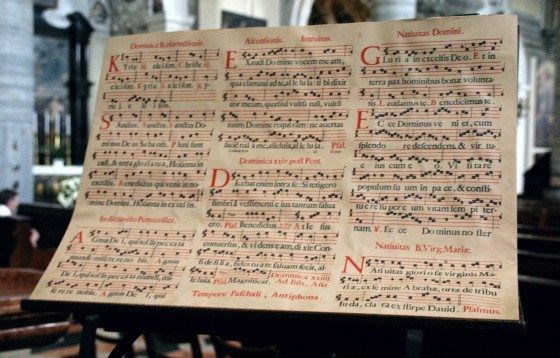 Dominica Resurrectionis.
Kyrie eleison. Christe
eleison. Kyrie eleison. Ky
Sanctus, Sanctus, Sanctus Do-
minus Deus Sabaoth. Pleni sunt
cæli, & terra gloria tua, Hosanna in
excelsis. Benedictus qui venit in no-
mine Domini, Hosanna in excelsis.
In die sancto Pentecostes.
Agnus Dei, qui tollis peccata
mundi: miserere nobis. Agnus
Dei, qui tollis peccata mundi, mi-
serere nobis. Agnus Dei, qui
Ascensionis. Introitus.
Exaudi Domine vocem meam,
qua clamavi ad te, alleluia: tibi dixit
cor meum, quæsivi vultum tuum, vultum
tuum Domine requiram: ne avertas
faciem tuam a me, alleluia, alleluia.
Psal.
Dominica xxiv post Pent.
Dicebat enim intra se: Si tetigero
fimbriam vestimenti eius tantum salua
ero. Psal. Benedictus. At Iesus
conversus, & videns eam, dixit: Con-
fide filia, fides tua te salvam fecit, al-
leluia. Psal. Magnificat. Dominica xxiiii
Ad Bñs, Aña
Tempore Paschali, Antiphona.
Natiuitas Domini.
Gloria in excelsis Deo. Et in
terra pax hominibus bonæ volunta-
tis. Laudamus te. Benedicimus te.
Ecce Dominus veniet, cum
splendore descendens, & virtu-
eius cum eo, Visitare
populum suum in pace, & consti-
tuere super eum vitam sempiter-
nam. V. Ecce Dominus noster
Natiuitas B. Virg. Mariæ.
Natiuitas gloriosæ virginis Ma-
riæ, ex semine Abrahæ, ortæ de tribu
Iuda, clara ex stirpe Dauid. Psalmus.